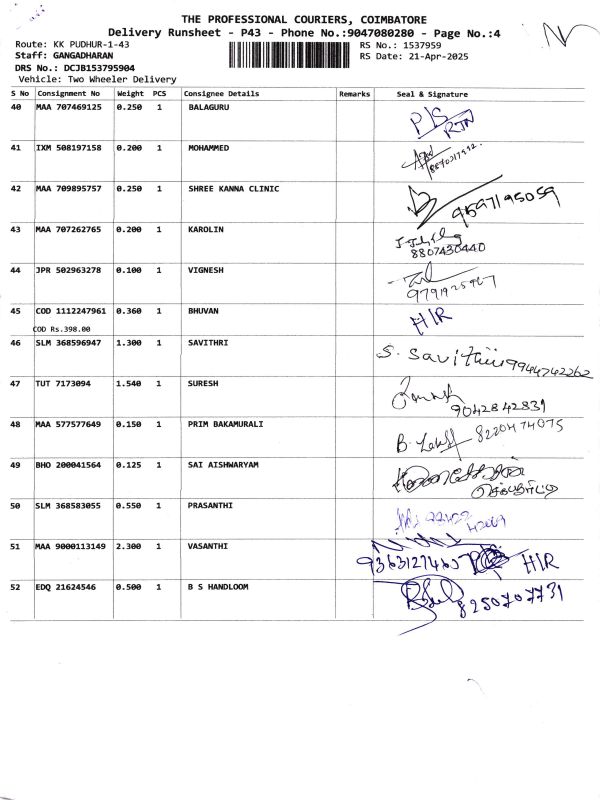 THE PROFESSIONAL COURIERS, COIMBATORE
Delivery Runsheet - P43 - Phone No.:9047080280 - Page No.:4
Route: KK PUDHUR-1-43
RS No.: 1537959
Staff: GANGADHARAN
RS Date: 21-Apr-2025
DRS No.: DCJB153795904
Vehicle: Two Wheeler Delivery
S No Consignment No Weight PCS Consignee Details Remarks Seal & Signature
40 MAA 707469125 0.250 1 BALAGURU P/S RTN
41 IXM 508197158 0.200 1 MOHAMMED
42 MAA 709895757 0.250 1 SHREE KANNA CLINIC 9597195059
43 MAA 707262765 0.200 1 KAROLIN 8807430440
44 JPR 502963278 0.100 1 VIGNESH 9791925967
45 COD 1112247961 0.360 1 BHUVAN H/R
COD Rs.398.00
46 SLM 368596947 1.300 1 SAVITHRI S. Savithiri 9944742262
47 TUT 7173094 1.540 1 SURESH 9042842831
48 MAA 577577649 0.150 1 PRIM BAKAMURALI 8220474075
49 BHO 200041564 0.125 1 SAI AISHWARYAM
50 SLM 368583055 0.550 1 PRASANTHI
51 MAA 9000113149 2.300 1 VASANTHI H/R
52 EDQ 21624546 0.500 1 B S HANDLOOM 8250707731